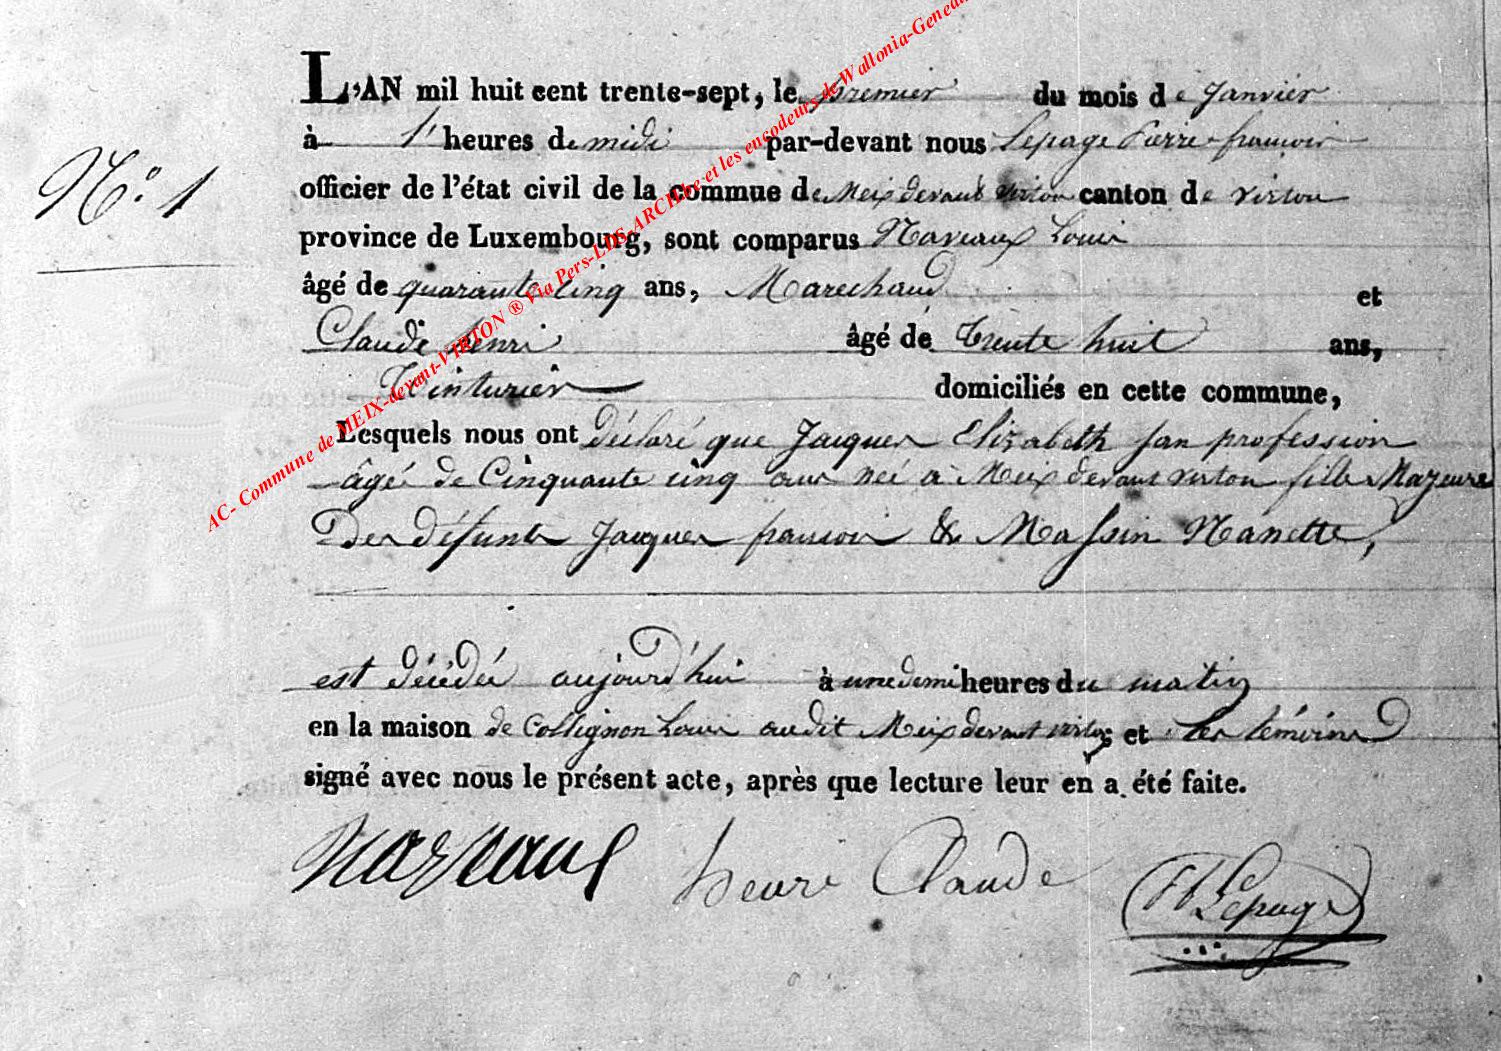 N.º 1
L'AN mil huit cent trente-sept, le premier du mois de Janvier
à 1' heures de midi par-devant nous Lepage Pierre-francois
officier de l'état civil de la commue de Meix devant virton canton de virton
province de Luxembourg, sont comparus Naveaux Louis
âgé de quarante cinq ans, Marechaud et
Claude henri âgé de Trente huit ans,
Tinturier domiciliés en cette commune,
Lesquels nous ont déclaré que Jacques Elizabeth san profession
âgé de Cinquante cinq ans neé a Meix devant virton fille Majeure
Des défunts Jacques francois & Massin Nanette,
est décédée aujourd'hui à une demi heures du matin
en la maison de Collignon Louis audit Meix devant virton; et les témoins
signé avec nous le présent acte, après que lecture leur en a été faite.
henri Claude
Lepage
AC- Commune de MEIX-devant-VIRTON ® Via Pers-LDS-ARCH.be et les encodeurs de Wallonia-Genea